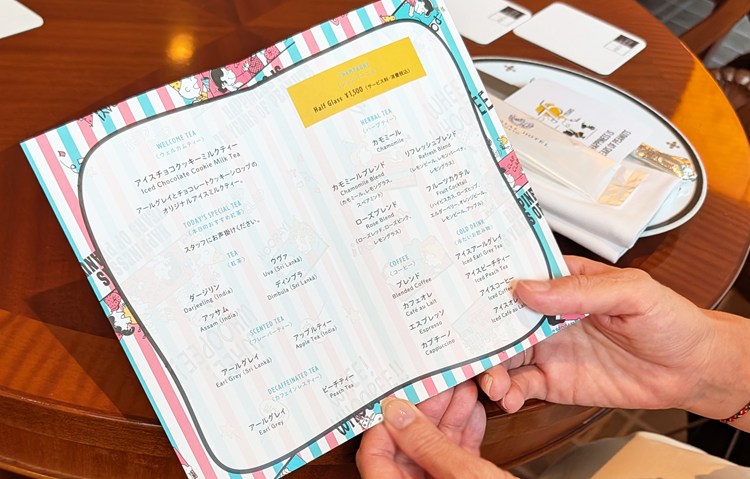 WELCOME TEA
(ウェルカムティー)
アイスチョコクッキーミルクティー
Iced Chocolate Cookie Milk Tea
アールグレイとチョコレートクッキーシロップの
オリジナルアイスミルクティー。
TODAY'S SPECIAL TEA
(本日のおすすめ紅茶)
スタッフにお声掛けください。
TEA
(紅茶)
ダージリン
Darjeeling (India)
ウヴァ
Uva (Sri Lanka)
アッサム
Assam (India)
ディンブラ
Dimbula (Sri Lanka)
SCENTED TEA
(フレーバーティー)
アールグレイ
Earl Grey (Sri Lanka)
アップルティー
Apple Tea (India)
DECAFFEINATED TEA
(カフェインレスティー)
アールグレイ
Earl Grey
ピーチティー
Peach Tea
Half Glass ¥1,500 (サービス料・消費税込)
HERBAL TEA
(ハーブティー)
カモミール
Chamomile
カモミールブレンド
Chamomile Blend
(カモミール、レモングラス、
スペアミント)
リフレッシュブレンド
Refresh Blend
(レモンピール、レモングラス)
ローズブレンド
Rose Blend
(ローズレッド、ローズピンク、
レモングラス)
フルーツカクテル
Fruit Cocktail
(ハイビスカス、ローズヒップ、
エルダーベリー、オレンジピール、
レモンピール、アップル)
COFFEE
(コーヒー)
ブレンド
Blended Coffee
カフェオレ
Café au Lait
エスプレッソ
Espresso
カプチーノ
Cappuccino
COLD DRINK
(冷たいお飲み物)
アイスアールグレイ
Iced Earl Grey Tea
アイスピーチティー
Iced Peach Tea
アイスコーヒー
Iced Coffee
アイスカフェオレ
Iced Café au
HAPPINESS IS